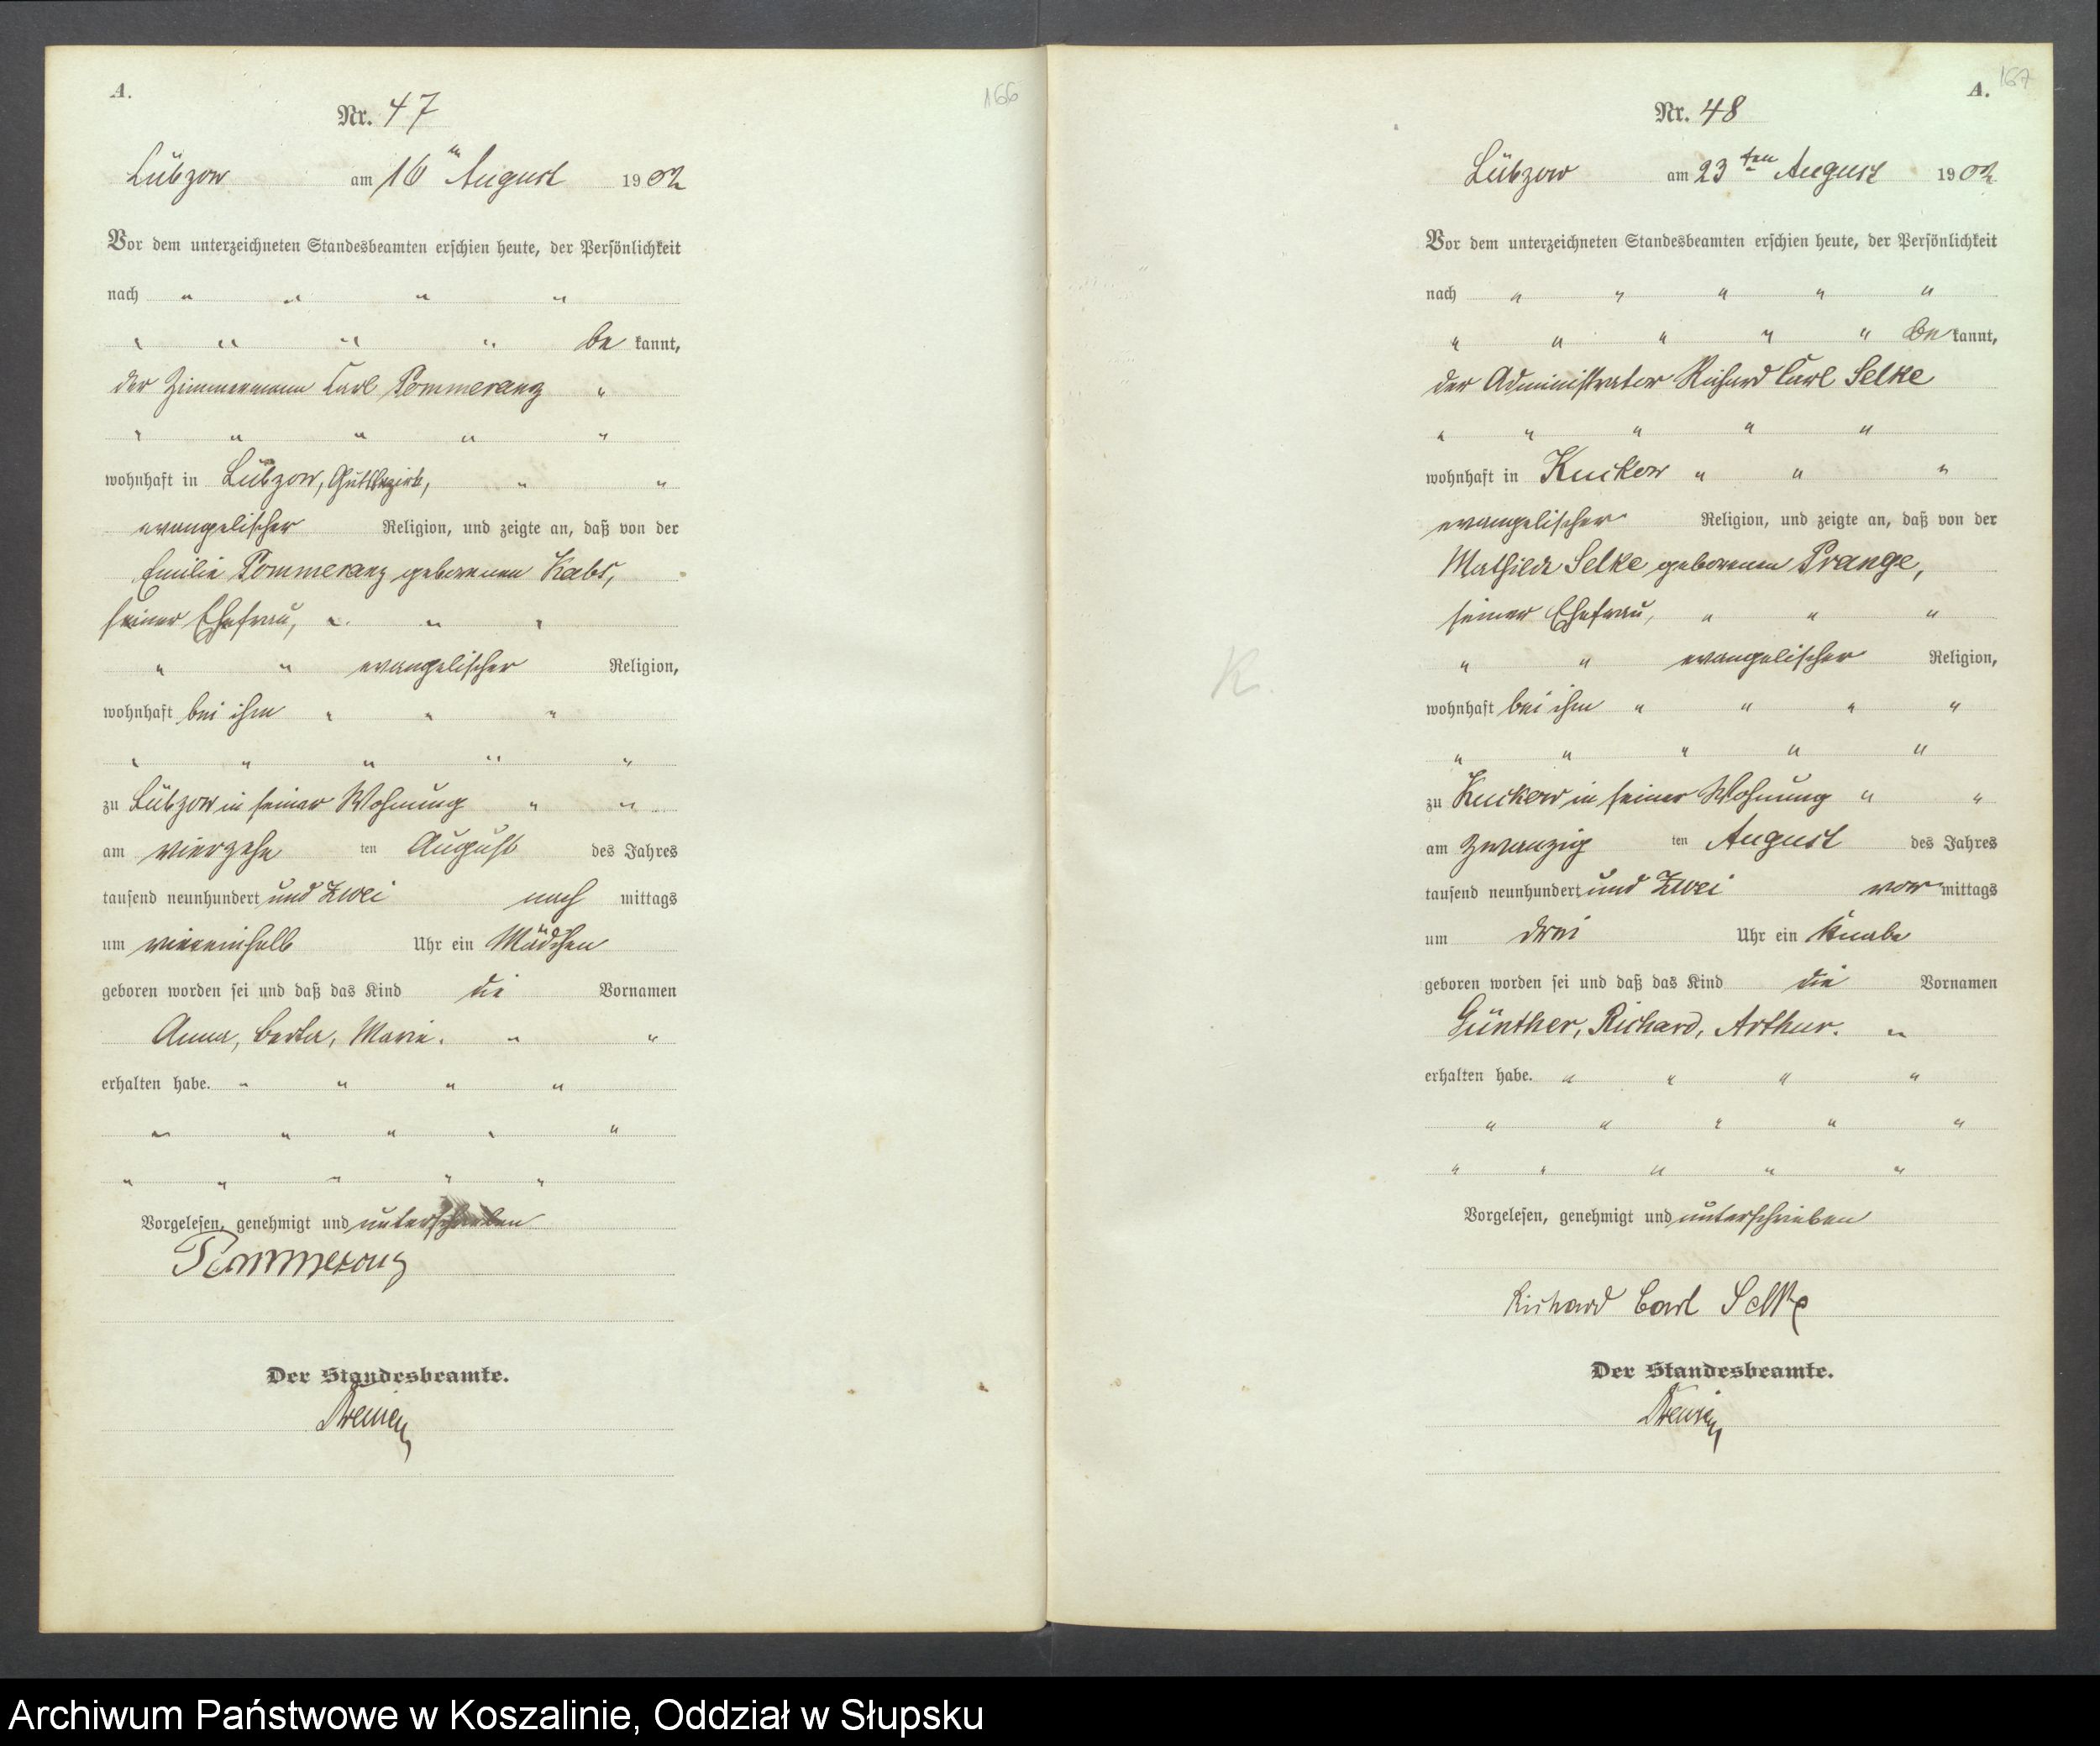 A.
166
Nr. 47
Lübzow am 16ten August 1902
Vor dem unterzeichneten Standesbeamten erschien heute, der Persönlichkeit
nach " " " "
" " " " be kannt,
der Zimmermann Carl Pommeranz "
" " " " "
wohnhaft in Lübzow, Gutsbezirk, " "
evangelischer Religion, und zeigte an, daß von der
Emilie Pommeranz geborenen Kabs,
seiner Ehefrau, " " "
" " evangelischer Religion,
wohnhaft bei ihm " " "
" " " " "
zu Lübzow in seiner Wohnung " "
am vierzehn ten August des Jahres
tausend neunhundert und zwei nach mittags
um viereinhalb Uhr ein Mädchen
geboren worden sei und daß das Kind die Vornamen
Anna, Berta, Marie. " "
erhalten habe. " " " "
" " " " "
" " " " "
Vorgelesen, genehmigt und unterschrieben
Pommeranz
Der Standesbeamte.
A.
167
Nr. 48
Lübzow am 23ten August 1902
Vor dem unterzeichneten Standesbeamten erschien heute, der Persönlichkeit
nach " " " " "
" " " " " be kannt,
der Administrator Richard Carl Selke
" " " " "
wohnhaft in Kuckow " " "
evangelischer Religion, und zeigte an, daß von der
Mathilde Selke geborenen Prange,
seiner Ehefrau, " " "
" " evangelischer Religion,
K.
wohnhaft bei ihm " " " "
" " " " "
zu Kuckow in seiner Wohnung " "
am zwanzig ten August des Jahres
tausend neunhundert und zwei vor mittags
um drei Uhr ein Knabe
geboren worden sei und daß das Kind die Vornamen
Günther, Richard, Arthur. "
erhalten habe. " " " "
" " " " "
" " " " "
Vorgelesen, genehmigt und unterschrieben
Richard Carl Selke
Der Standesbeamte.
Archiwum Państwowe w Koszalinie, Oddział w Słupsku